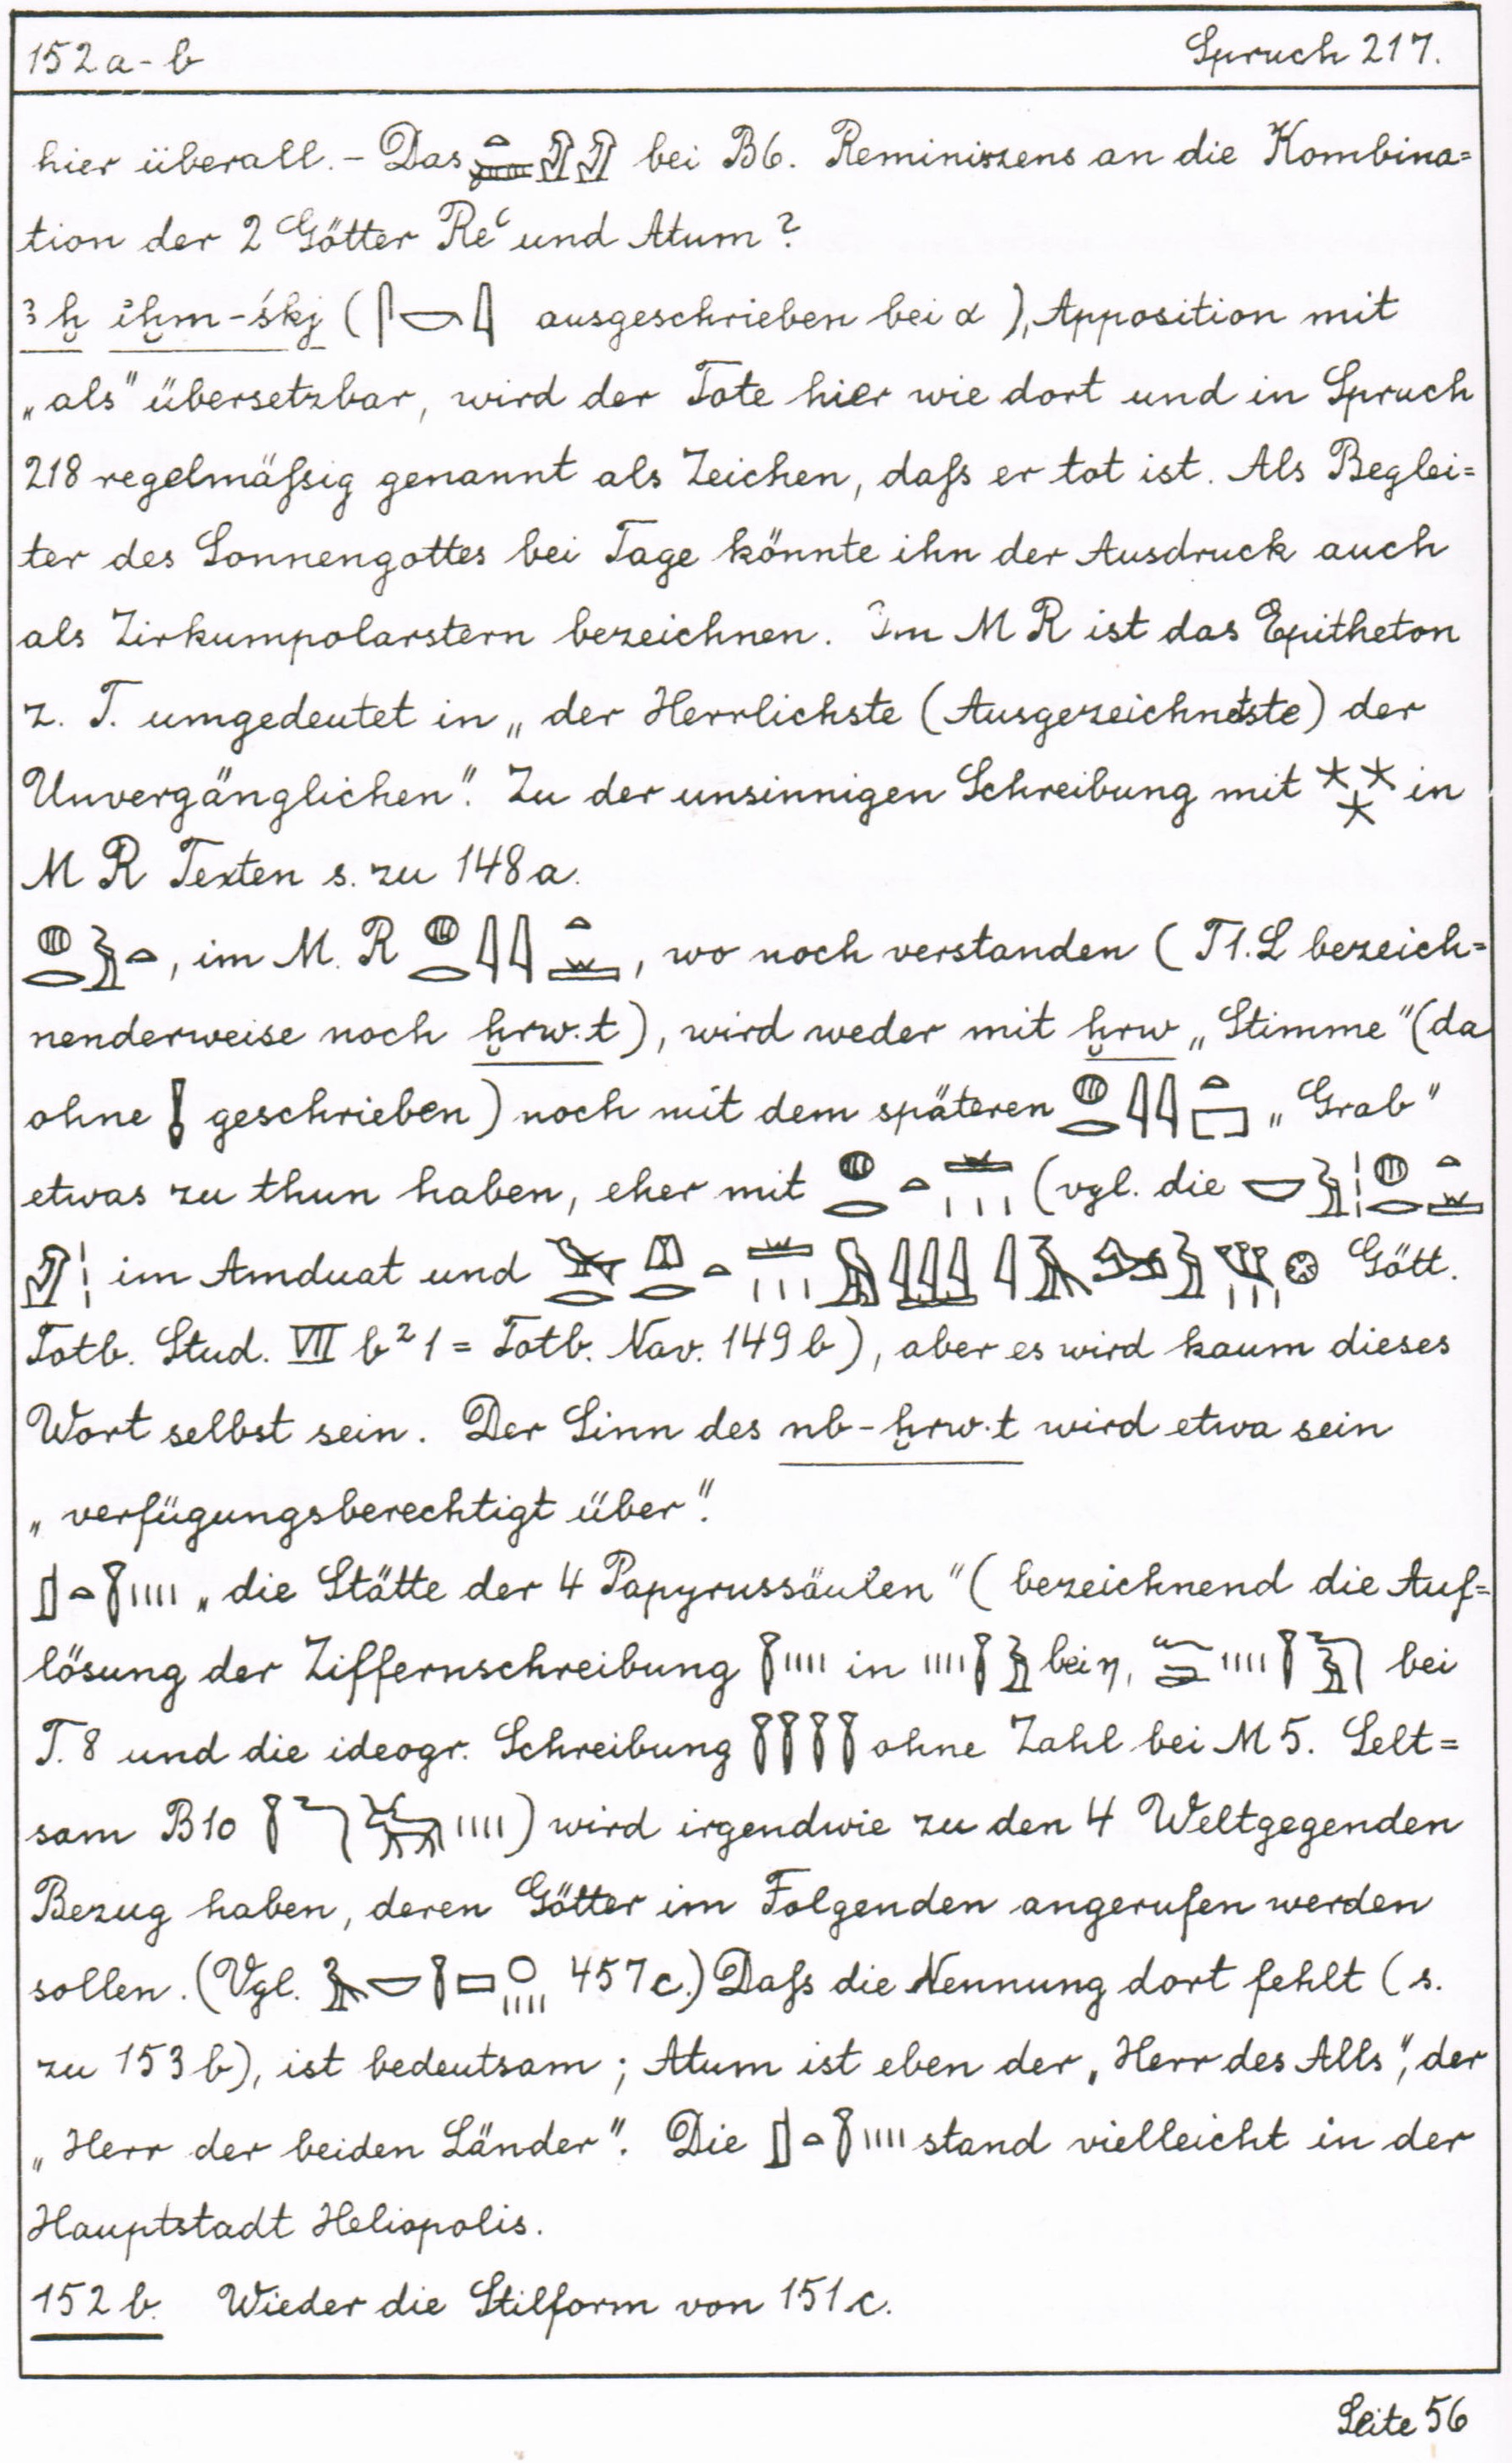 152a-b Spruch 217.
hier überall. - Das bei B6. Reminiszens an die Kombina=
tion der 2 Götter Reꜥ und Atum?
ꜣḫ iḫm-śkj ( 𓋴𓎡𓇋 ausgeschrieben bei α ), Apposition mit
„als" übersetzbar, wird der Tote hier wie dort und in Spruch
218 regelmäßig genannt als Zeichen, daß er tot ist. Als Beglei=
ter des Sonnengottes bei Tage könnte ihn der Ausdruck auch
als Zirkumpolarstern bezeichnen. Im M R ist das Epitheton
z. T. umgedeutet in „der Herrlichste (Ausgezeichnetste) der
Unvergänglichen". Zu der unsinnigen Schreibung mit 𓇼𓇼𓇼 in
M R Texten s. zu 148a.
𓐍𓂋𓅱𓏏, im M. R 𓐍𓂋𓇋𓇋𓏏, wo noch verstanden (T1.L bezeich=
nenderweise noch ḫrw.t), wird weder mit ḫrw „Stimme" (da
ohne 𓊤 geschrieben) noch mit dem späteren 𓐍𓂋𓇋𓇋𓏏𓉐 „Grab"
etwas zu thun haben, eher mit 𓐍𓂋𓏏 (vgl. die 𓎟𓅱𓏥𓐍𓂋𓏏
im Amduat und Gött.
Totb. Stud. VII b² 1 = Totb. Nav. 149 b), aber es wird kaum dieses
Wort selbst sein. Der Sinn des nb-ḫrw.t wird etwa sein
„verfügungsberechtigt über".
𓊨𓏏𓇅𓏽 „die Stätte der 4 Papyrussäulen" (bezeichnend die Auf=
lösung der Ziffernschreibung 𓇅𓏽 in 𓏽𓇅𓅱 bei η, 𓏽𓇅𓅱 bei
T. 8 und die ideogr. Schreibung 𓇅𓇅𓇅𓇅 ohne Zahl bei M 5. Selt=
sam B10 𓇅 𓏽) wird irgendwie zu den 4 Weltgegenden
Bezug haben, deren Götter im Folgenden angerufen werden
sollen. (Vgl. 457c.) Daß die Nennung dort fehlt (s.
zu 153 b), ist bedeutsam; Atum ist eben der „Herr des Alls", der
„Herr der beiden Länder". Die 𓊨𓏏𓇅𓏽 stand vielleicht in der
Hauptstadt Heliopolis.
152 b. Wieder die Stilform von 151c.
Seite 56